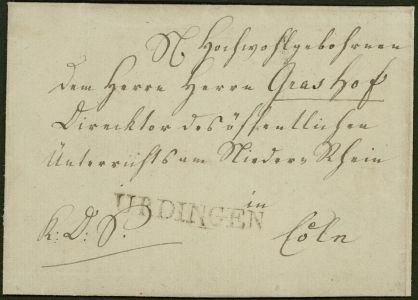 Sr Hochwohlgebohrnen
dem Herrn Herrn Grashof
Direcktor des öffentlichen
Unterrichts am Niedern Rhein
in
URDINGEN
K: D: S. Cöln